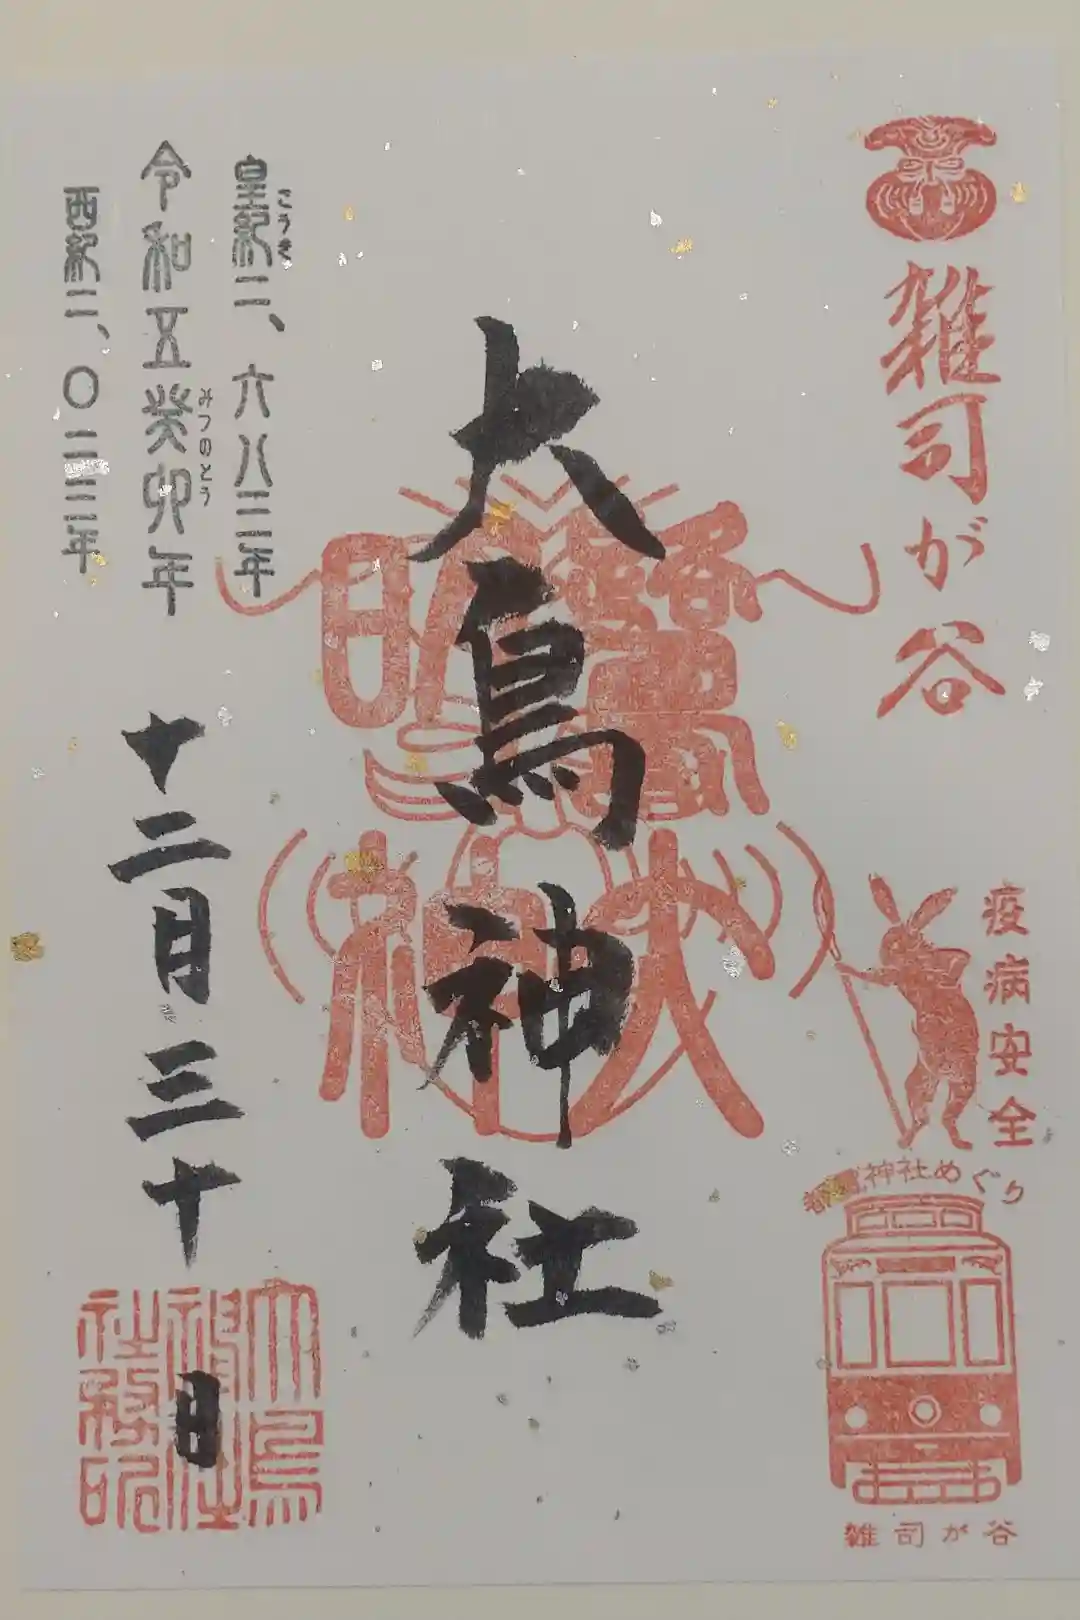 雑司が谷
疫病安全
神社めぐり
雑司が谷
大鳥神社
皇紀二、六八三年
こうき
令和五癸卯年
みつのとう
西紀二、〇二三年
十二月三十日
大鳥
神社
社務印